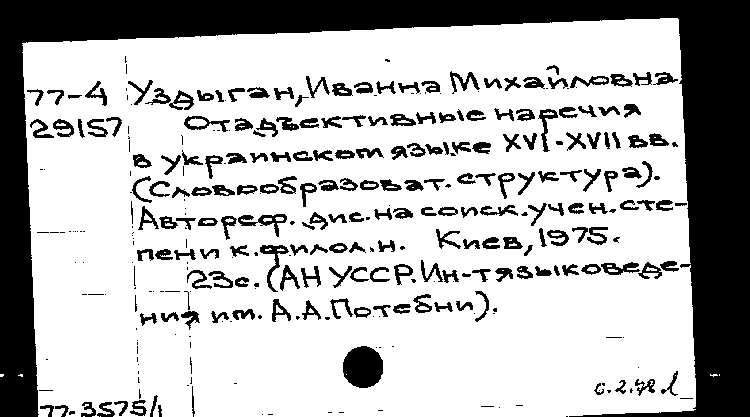 77-4 Уздыган, Иванна Михайловна.
29157 Отадъективные наречия
в украинском языке XVI-XVII вв.
(Словообразоват. структура).
Автореф. дис. на соиск. учен. сте-
пени к. филол. н. Киев, 1975.
23с. (АН УССР. Ин-т языковеде-
ния им. А.А. Потебни).
77-3575/1